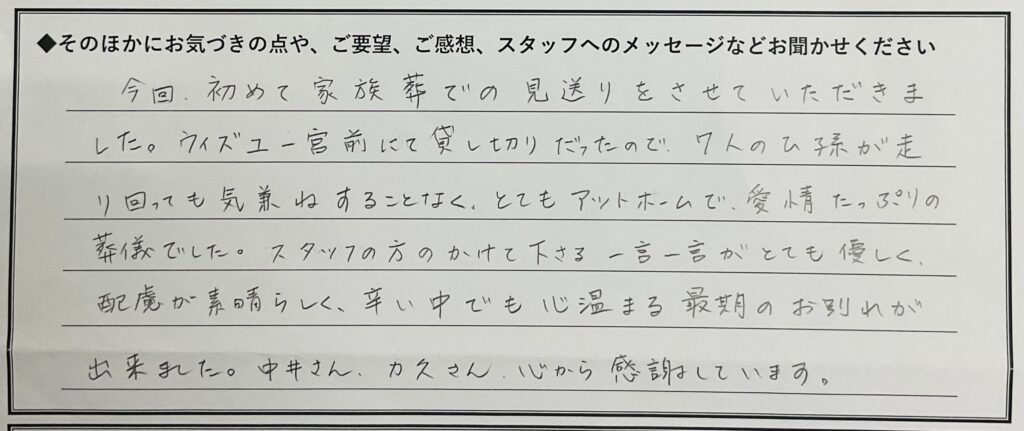 ◆そのほかにお気づきの点や、ご要望、ご感想、スタッフへのメッセージなどお聞かせください
今回、初めて家族葬での見送りをさせていただきま
した。ウィズユー宮前にて貸し切りだったので、7人のひ孫が走
り回っても気兼ねすることなく、とてもアットホームで、愛情たっぷりの
葬儀でした。スタッフの方のかけて下さる一言一言がとても優しく、
配慮が素晴らしく、辛い中でも心温まる最期のお別れが
出来ました。中井さん、カ久さん、心から感謝しています。